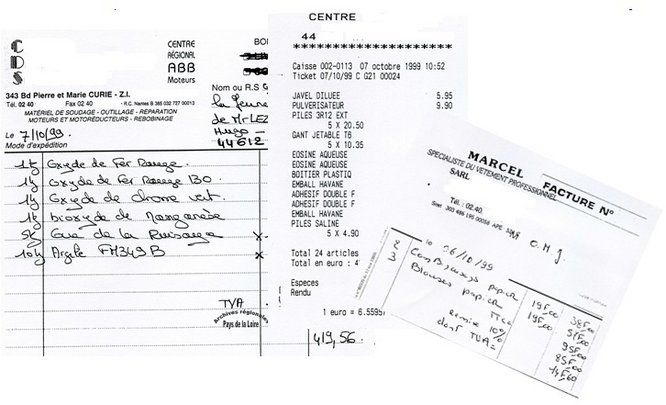 CDS
CENTRE
RÉGIONAL
ABB
Moteurs
343 Bd Pierre et Marie CURIE - Z.I.
Tél. 02 40 Fax 02 40 - R.C. Nantes B 385 032 727 00013
MATÉRIEL DE SOUDAGE - OUTILLAGE - RÉPARATION
MOTEURS ET MOTORÉDUCTEURS - REBOBINAGE
Le 7/10/99
Mode d'expédition
BO
Nom ou R.S
la Jeune
de Mr LEZ
Hugo -
44612
1kg Oxyde de Fer Rouge.
1kg Oxyde de Fer Rouge 130
1kg Oxyde de chrome vert.
1kg bioxyde de Manganèse
5kg
10kg Argile FM349B
TVA
Archives régionales
Pays de la Loire
419,56
CENTRE
44
Caisse 002-0113 07 octobre 1999 10:52
Ticket 07/10/99 C G21 00024
JAVEL DILUEE 5.95
PULVERISATEUR 9.90
PILES 3R12 EXT
5 X 20.50
GANT JETABLE T6
5 X 10.35
EOSINE AQUEUSE
EOSINE AQUEUSE
BOITIER PLASTIQ
EMBALL HAVANE
ADHESIF DOUBLE F
ADHESIF DOUBLE F
EMBALL HAVANE
PILES SALINE
5 X 4.90
Total 24 articles
Total en euro : 4
Especes
Rendu
1 euro = 6.5595
MARCEL
SPECIALISTE DU VETEMENT PROFESSIONNEL
SARL
Tél. : 02.40.
FACTURE N°
O.M.J.
le 06/10/99
2 papier 19F,00 38F,00
3 Blouses papier 19F,00 57F,00
TTC 95F,00
remise 10% 85F,00
dont TVA = 14F,60